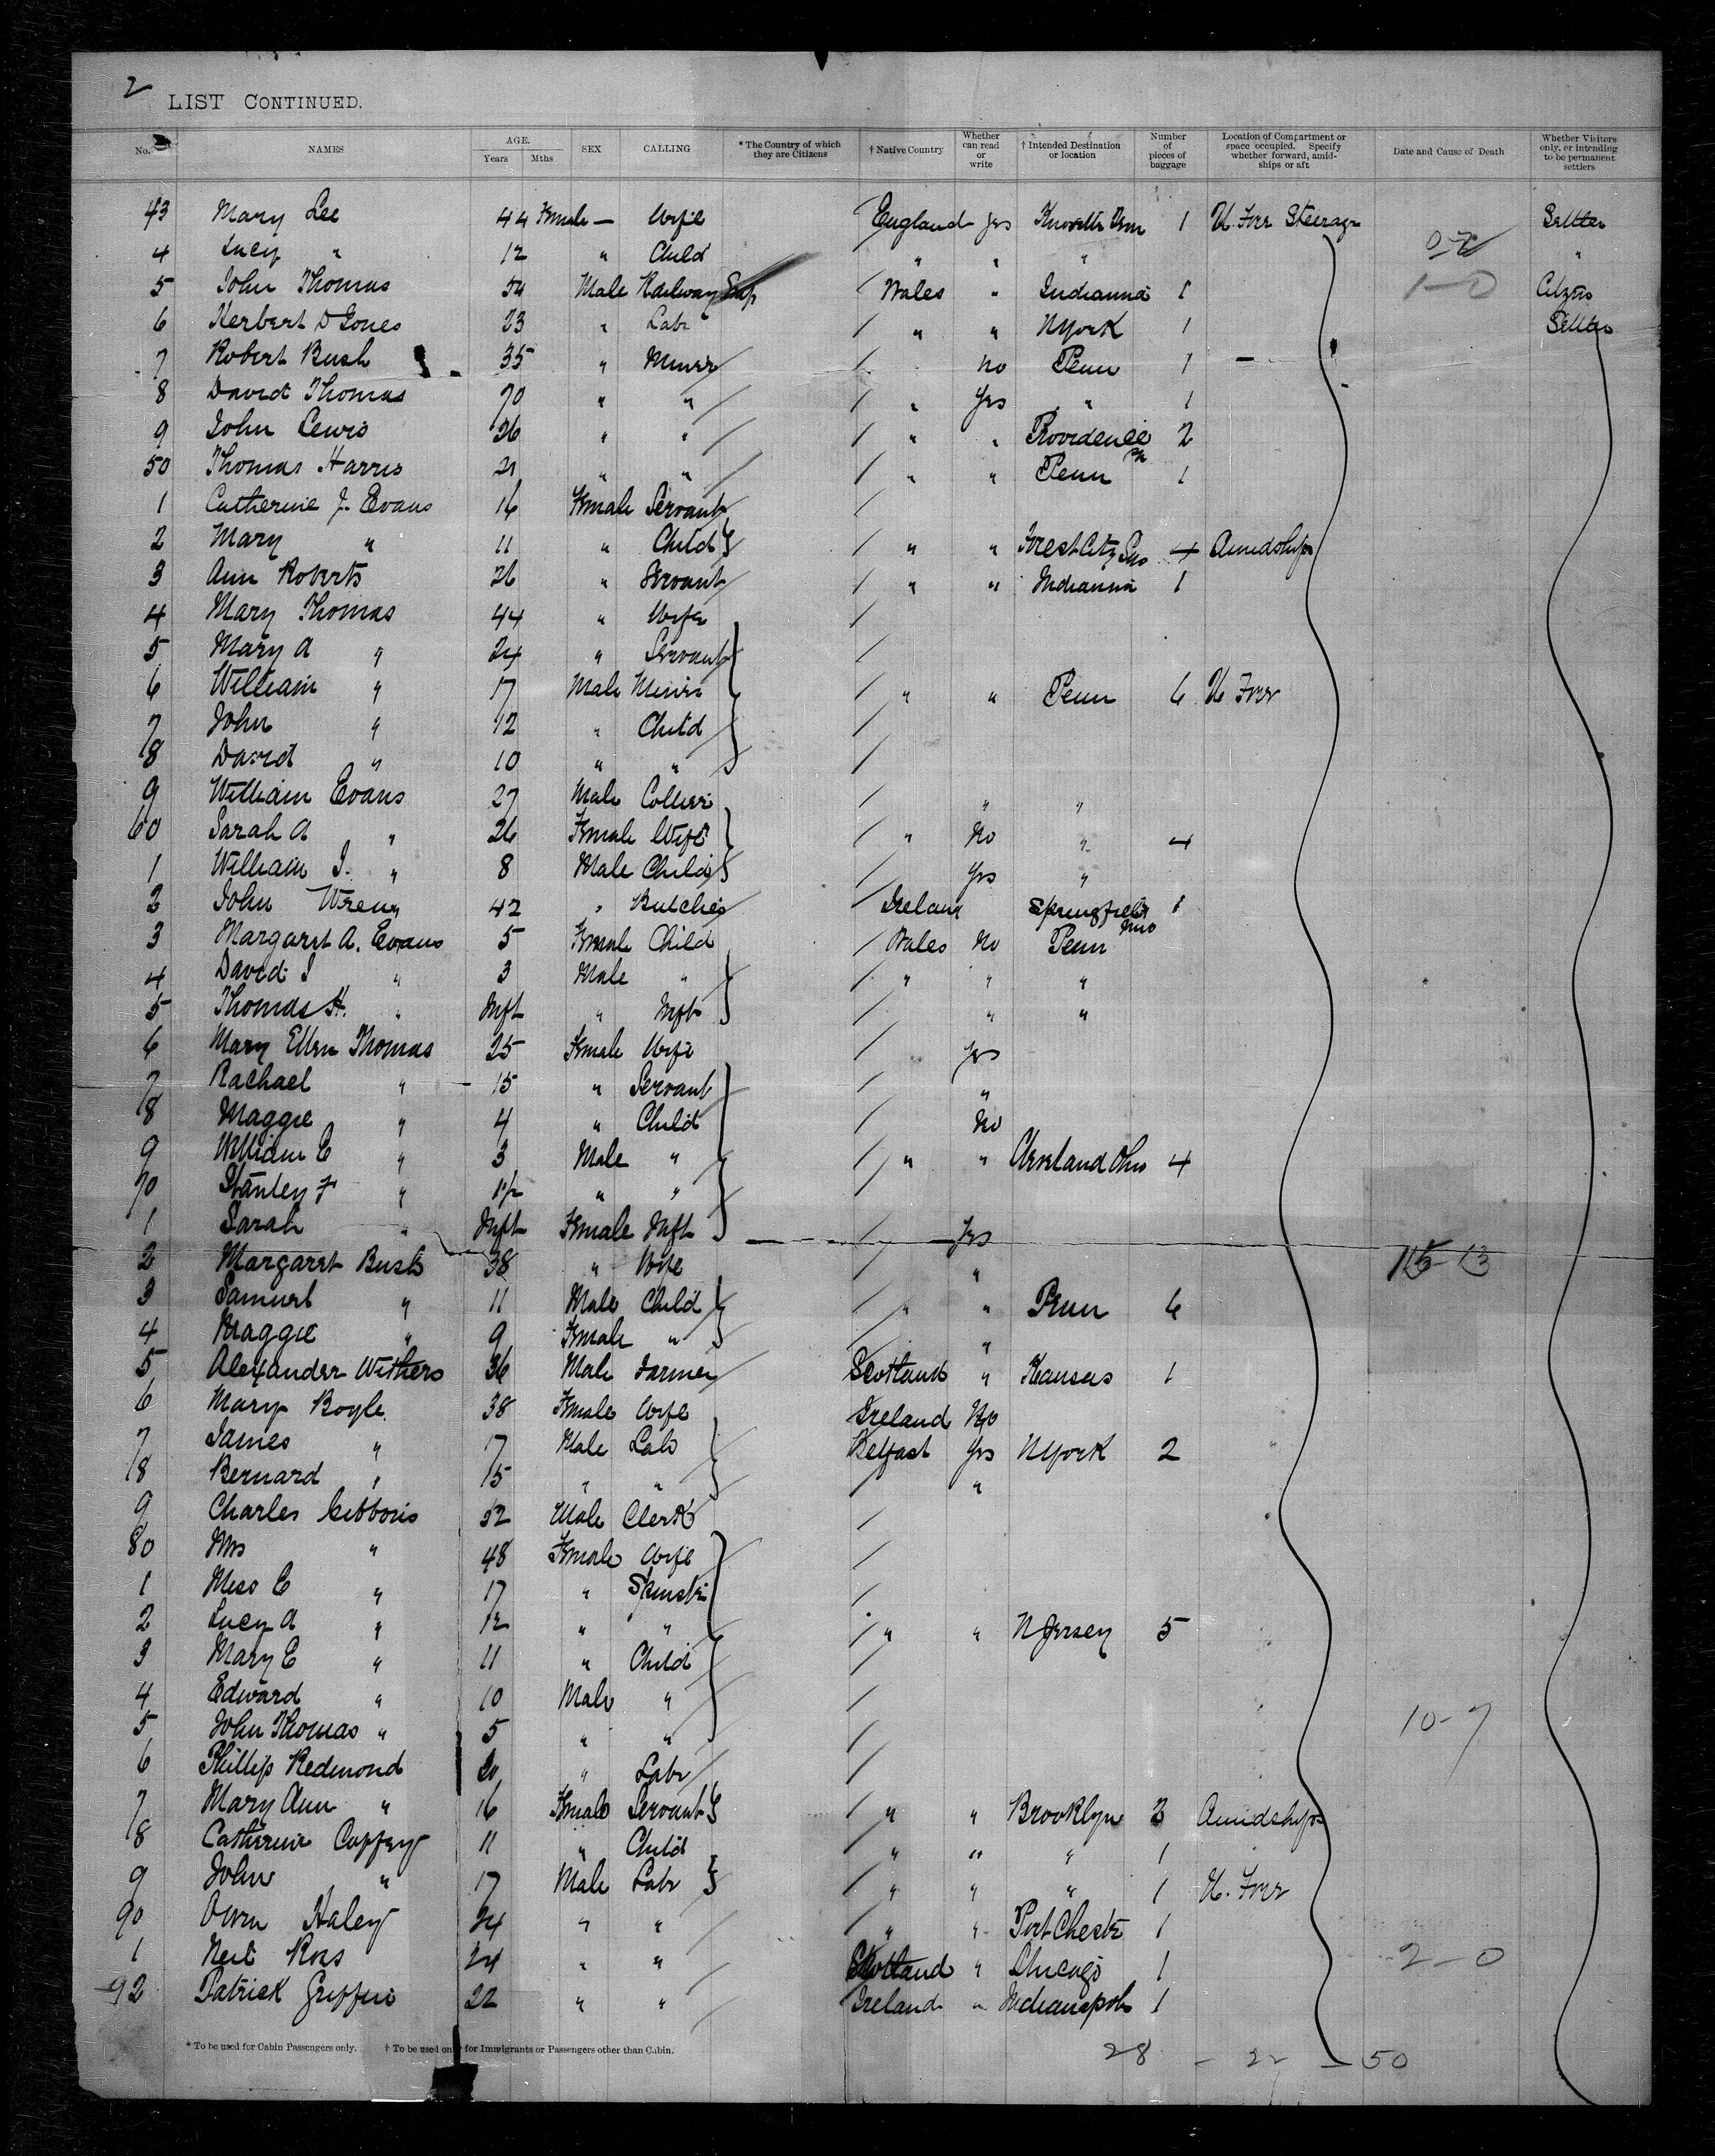 2
LIST CONTINUED.
No. NAMES AGE. Years Mths SEX CALLING * The Country of which they are Citizens † Native Country Whether can read or write † Intended Destination or location Number of pieces of baggage Location of Compartment or space occupied. Specify whether forward, amidships or aft Date and Cause of Death Whether Visitors only, or intending to be permanent settlers
43 Mary Lee 44 Female — Wife England yes 1 U. Forr Steerage Settler
4 Lucy " 12 " Child " " " "
5 John Thomas 54 Male Railway Emp / Wales " Indianna 1 1-0
6 Herbert D Jones 23 " Labr / " " NYork 1 Settler
7 Robert Bush 35 " Miner / no Penn 1 —
8 David Thomas 70 " " / " Yes " 1
9 John Lewis 26 " " / " " Providence Pa 2
50 Thomas Harris 21 " " / " " Penn 1
1 Catherine J. Evans 16 Female Servant /
2 Mary " 11 " Child / " " Forest City 4 Amidships
3 Ann Roberts 26 " Servant / " " Indianna 1
4 Mary Thomas 44 " Wife /
5 Mary A " 24 " Servant /
6 William " 17 Male Miner / " " Penn 6 U Forr
7 John " 12 " Child /
8 David " 10 " " /
9 William Evans 27 Male Collier / " "
60 Sarah A " 26 Female Wife / " No " 4
1 William J. " 8 Male Child / Yes "
2 John Wrenn 42 " Butcher Ireland Springfield 1
3 Margaret A. Evans 5 Female Child / Wales No Penn
4 David J " 3 Male " / " " "
5 Thomas H. " Inft " Inft / " "
6 Mary Ellen Thomas 25 Female Wife / yes
7 Rachael " 15 " Servant / "
8 Maggie " 4 " Child / No
9 William E " 3 Male " / " " Cleveland Ohio 4
70 Stanley F " 1½ " " /
1 Sarah " Inft Female Inft / Yes
2 Margaret Bush 38 " Wife / "
3 Samuel " 11 Male Child / " " Penn 6
4 Maggie " 9 Female " "
5 Alexander Withers 36 Male Farmer Scotland " Kansas 1
6 Mary Boyle 38 Female Wife Ireland No
7 James " 17 Male Labr Belfast Yes NYork 2
8 Bernard " 15 " " / "
9 Charles Gibbons 52 Male Clerk /
80 Mrs " 48 Female Wife /
1 Miss C " 17 " Spinster /
2 Lucy A " 12 " " / " " N Jersey 5
3 Mary E " 11 " Child /
4 Edward " 10 Male " /
5 John Thomas " 5 " " / 10-7
6 Phillip Redmond 20 " Labr /
7 Mary Ann " 16 Female Servant / " " Brooklyn 3 Amidships
8 Catherine 11 " Child " " " 1
9 John " 17 Male Labr / " " " 1 U. Forr
90 Owen Haley 24 " " / " " Port Chester 1
1 Neil Ross 24 " " Scotland " Chicago 1 2-0
92 Patrick Griffin 22 " " Ireland " Indianapols 1
* To be used for Cabin Passengers only. † To be used only for Immigrants or Passengers other than Cabin.
28 - 22 - 50